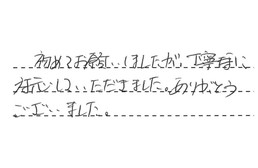 初めてお願いしましたが、丁寧に
対応していただきました。ありがとう
ございました。